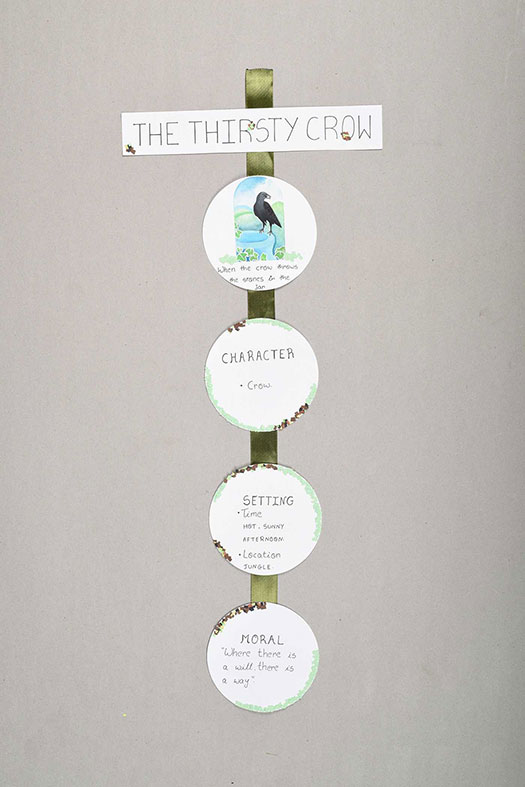 THE THIRSTY CROW
When the crow throws
the stones in the
Jar
CHARACTER
• Crow
SETTING
• Time
HOT, SUNNY
AFTERNOON
• Location
JUNGLE.
MORAL
"Where there is
a will, there is
a way"